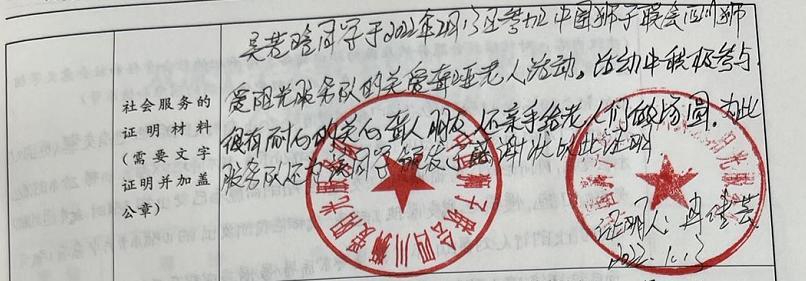 社会服务的
证明材料
(需要文字
证明并加盖
公章)
同学于2022年1月13日参加中国狮子联会四川狮
爱阳光服务队的关爱聋哑老人活动。活动中积极参与
很有耐心的关心聋人朋友,还亲手给老人们做汤圆。为此
服务队还为该同学颁发了感谢状,特此证明
证明人:
2022.1.13
中国狮子联会四川狮爱阳光服务队
阳光服务